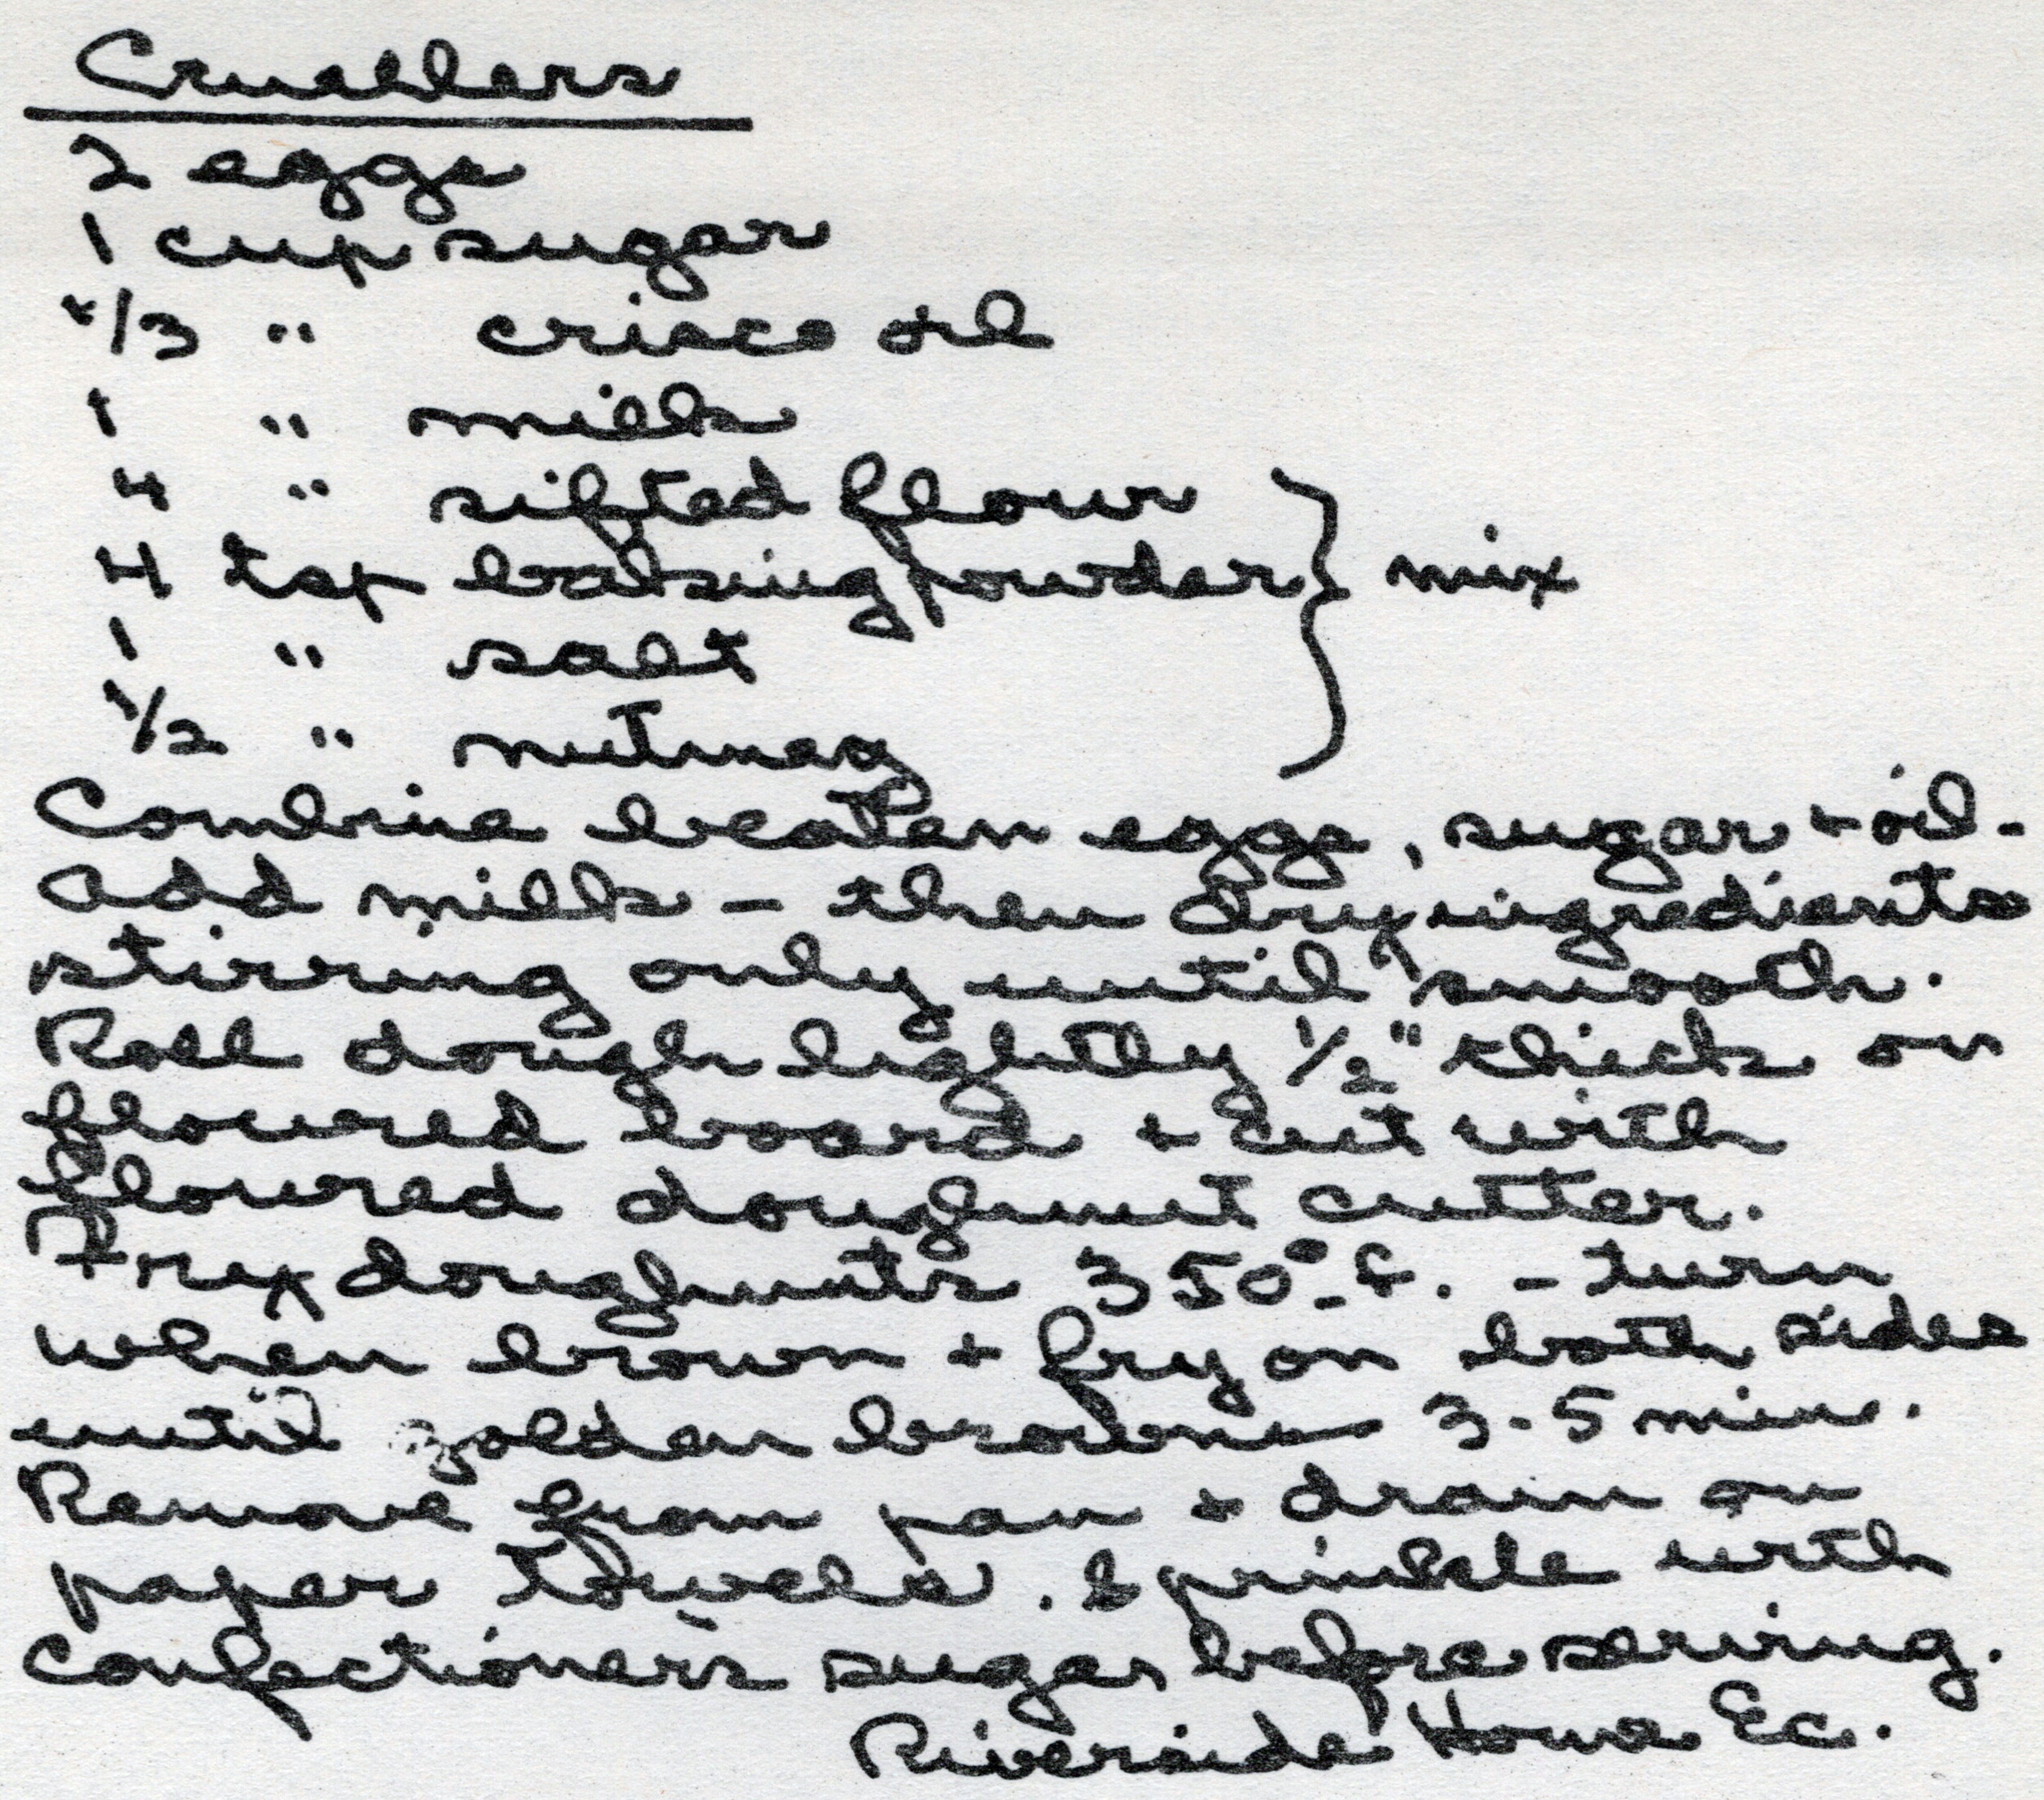 Cruellers
2 eggs
1 cup sugar
1/3 " crisco oil
1 " milk
4 " sifted flour
4 tsp baking powder } mix
1 " salt
1/2 " nutmeg
Combine beaten eggs, sugar + oil -
add milk - then dry ingredients
stirring only until smooth.
Roll dough lightly 1/2" thick on
floured board + cut with
floured doughnut cutter.
Fry doughnuts 350° f. - turn
when brown + fry on both sides
until golden brown 3-5 min.
Remove from pan + drain on
paper towels. Sprinkle with
confectioner's sugar before serving.
Riverside Home Ec.